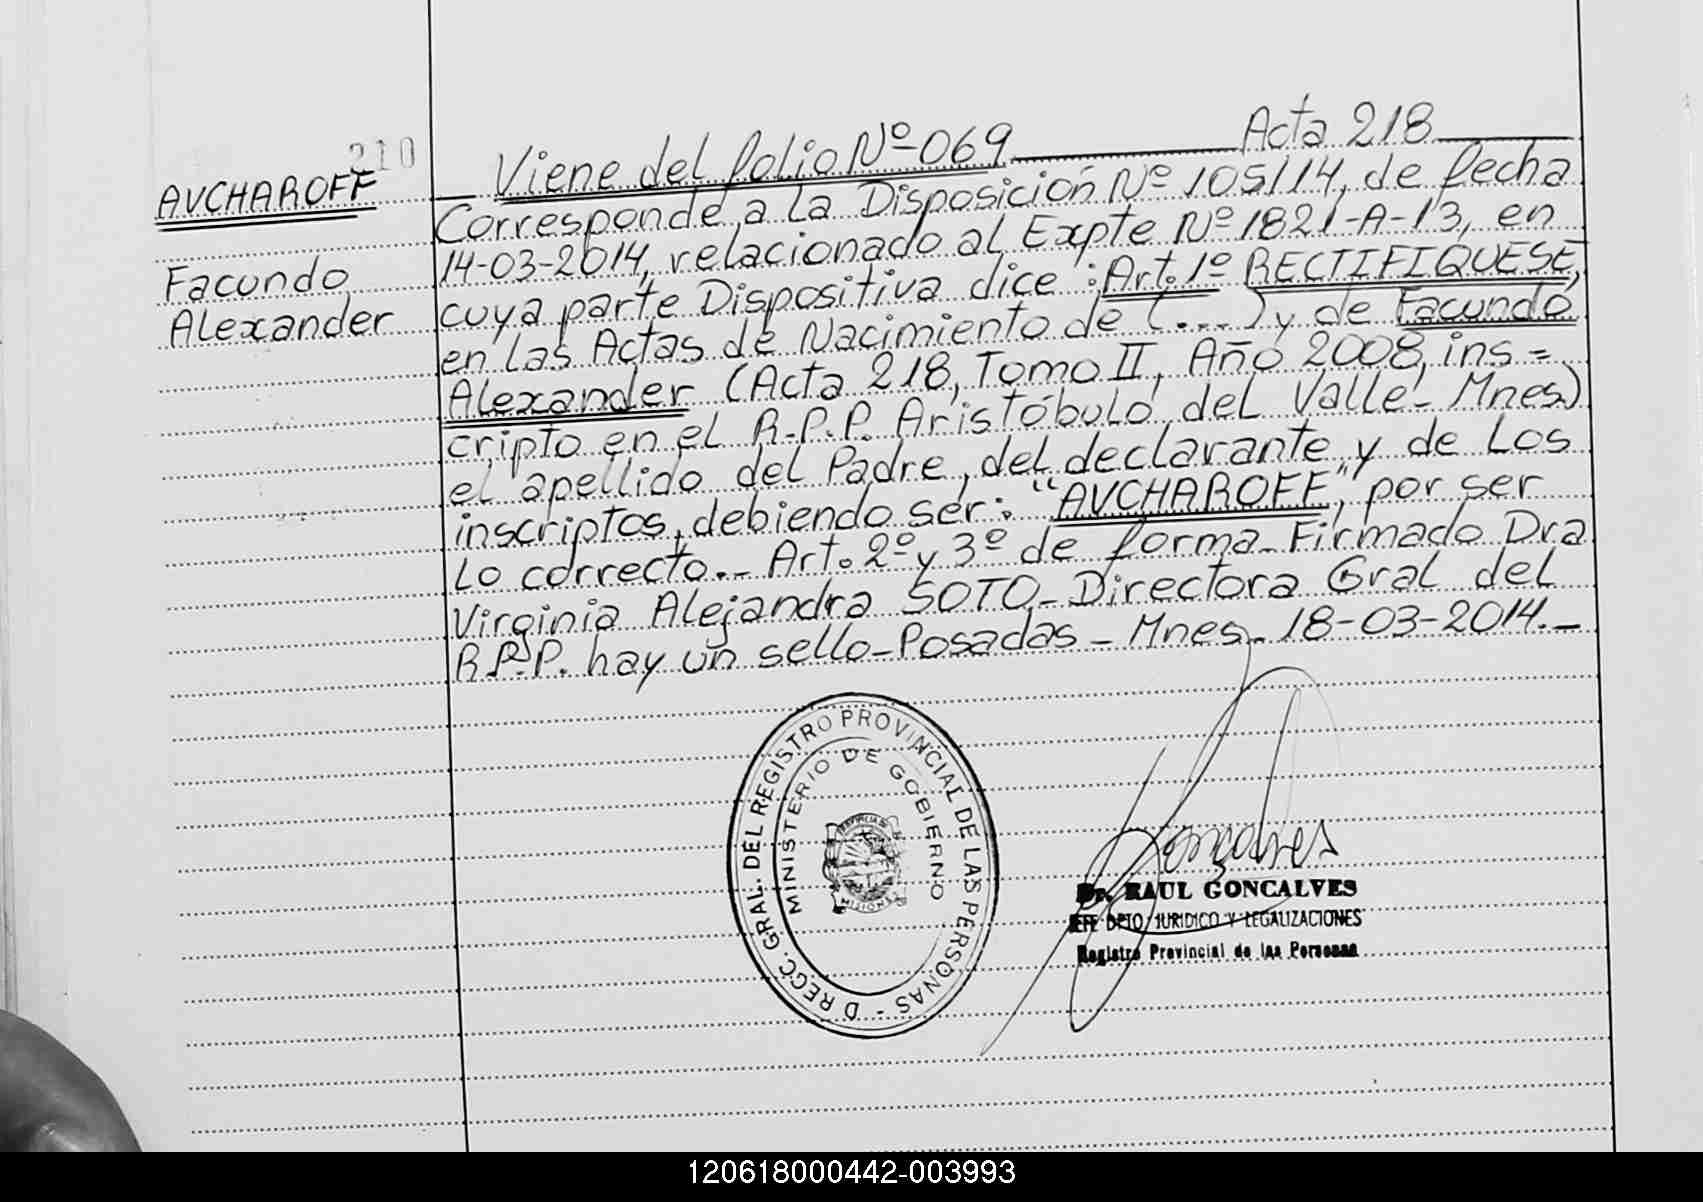 210
AVCHAROFF
Facundo
Alexander
Viene del folio Nº 069 Acta 218
Corresponde a la Disposición Nº 105/14, de fecha
14-03-2014, relacionado al Expte Nº 1821-A-13, en
cuya parte Dispositiva dice: Art. 1º RECTIFIQUESE,
en las Actas de Nacimiento de (...) y de Facundo
Alexander (Acta 218, Tomo II, Año 2008, ins=
cripto en el R.P.P. Aristóbulo del Valle - Mnes)
el apellido del Padre, del declarante y de los
inscriptos, debiendo ser: "AVCHAROFF", por ser
lo correcto._ Art. 2º y 3º de forma_ Firmado Dra
Virginia Alejandra SOTO_ Directora Gral del
R.P.P. hay un sello_Posadas_Mnes_18-03-2014._
D RECC. GRAL. DEL REGISTRO PROVINCIAL DE LAS PERSONAS -
MINISTERIO DE GOBIERNO
PROVINCIA DE
MISIONES
Goncalves
Dr. RAUL GONCALVES
JEFE DPTO. JURIDICO Y LEGALIZACIONES
Registro Provincial de las Personas
120618000442-003993